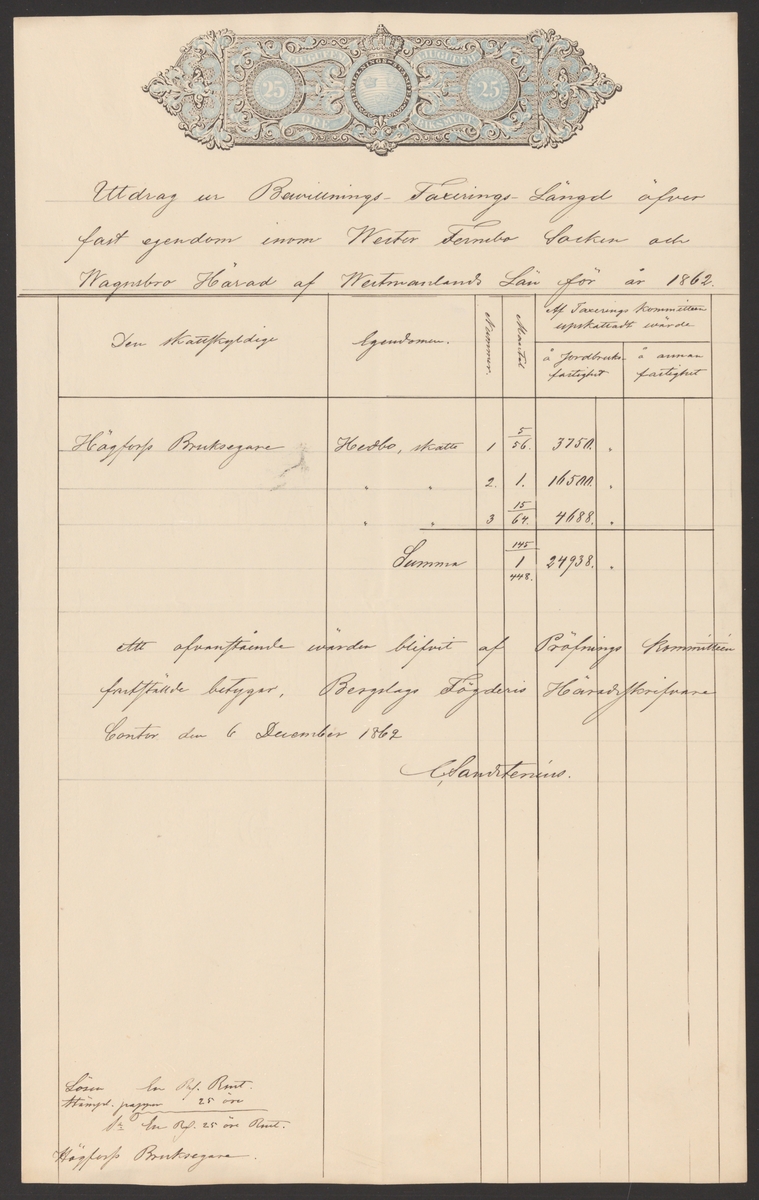 TJUGUFEM TJUGUFEM
25 BEVILLNINGS STÄMPEL 25
ÖRE RIKSMYNT
Utdrag ur Bewillnings-Taxerings-Längd öfver
fast egendom inom Wester Fernebo Socken och
Wagnsbro Härad af Westmanlands Län för år 1862.
Den skattskyldige Egendomen. Nummer. Mantal Af Taxerings Kommitteen upskattadt wärde
å Jordbruks- fastighet å annan fastighet
Högfors Bruksegare Hedbo, skatte 1 5/56. 3750. "
" " 2. 1. 16500. "
" " 3 15/64. 4688. "
Summa 1 145/448. 24938. "
Att ofvanstående wärden blifvit af Pröfnings Kommitteen
fastställde betygar, Bergslags Fögderis Häradsskrifvare
Contor den 6 December 1862
C. Sandstenius.
Lösen En Rd. Rmt.
Stämpl. papper 25 öre
Sa En Rd. 25 öre Rmt.
Högfors Bruksegare.